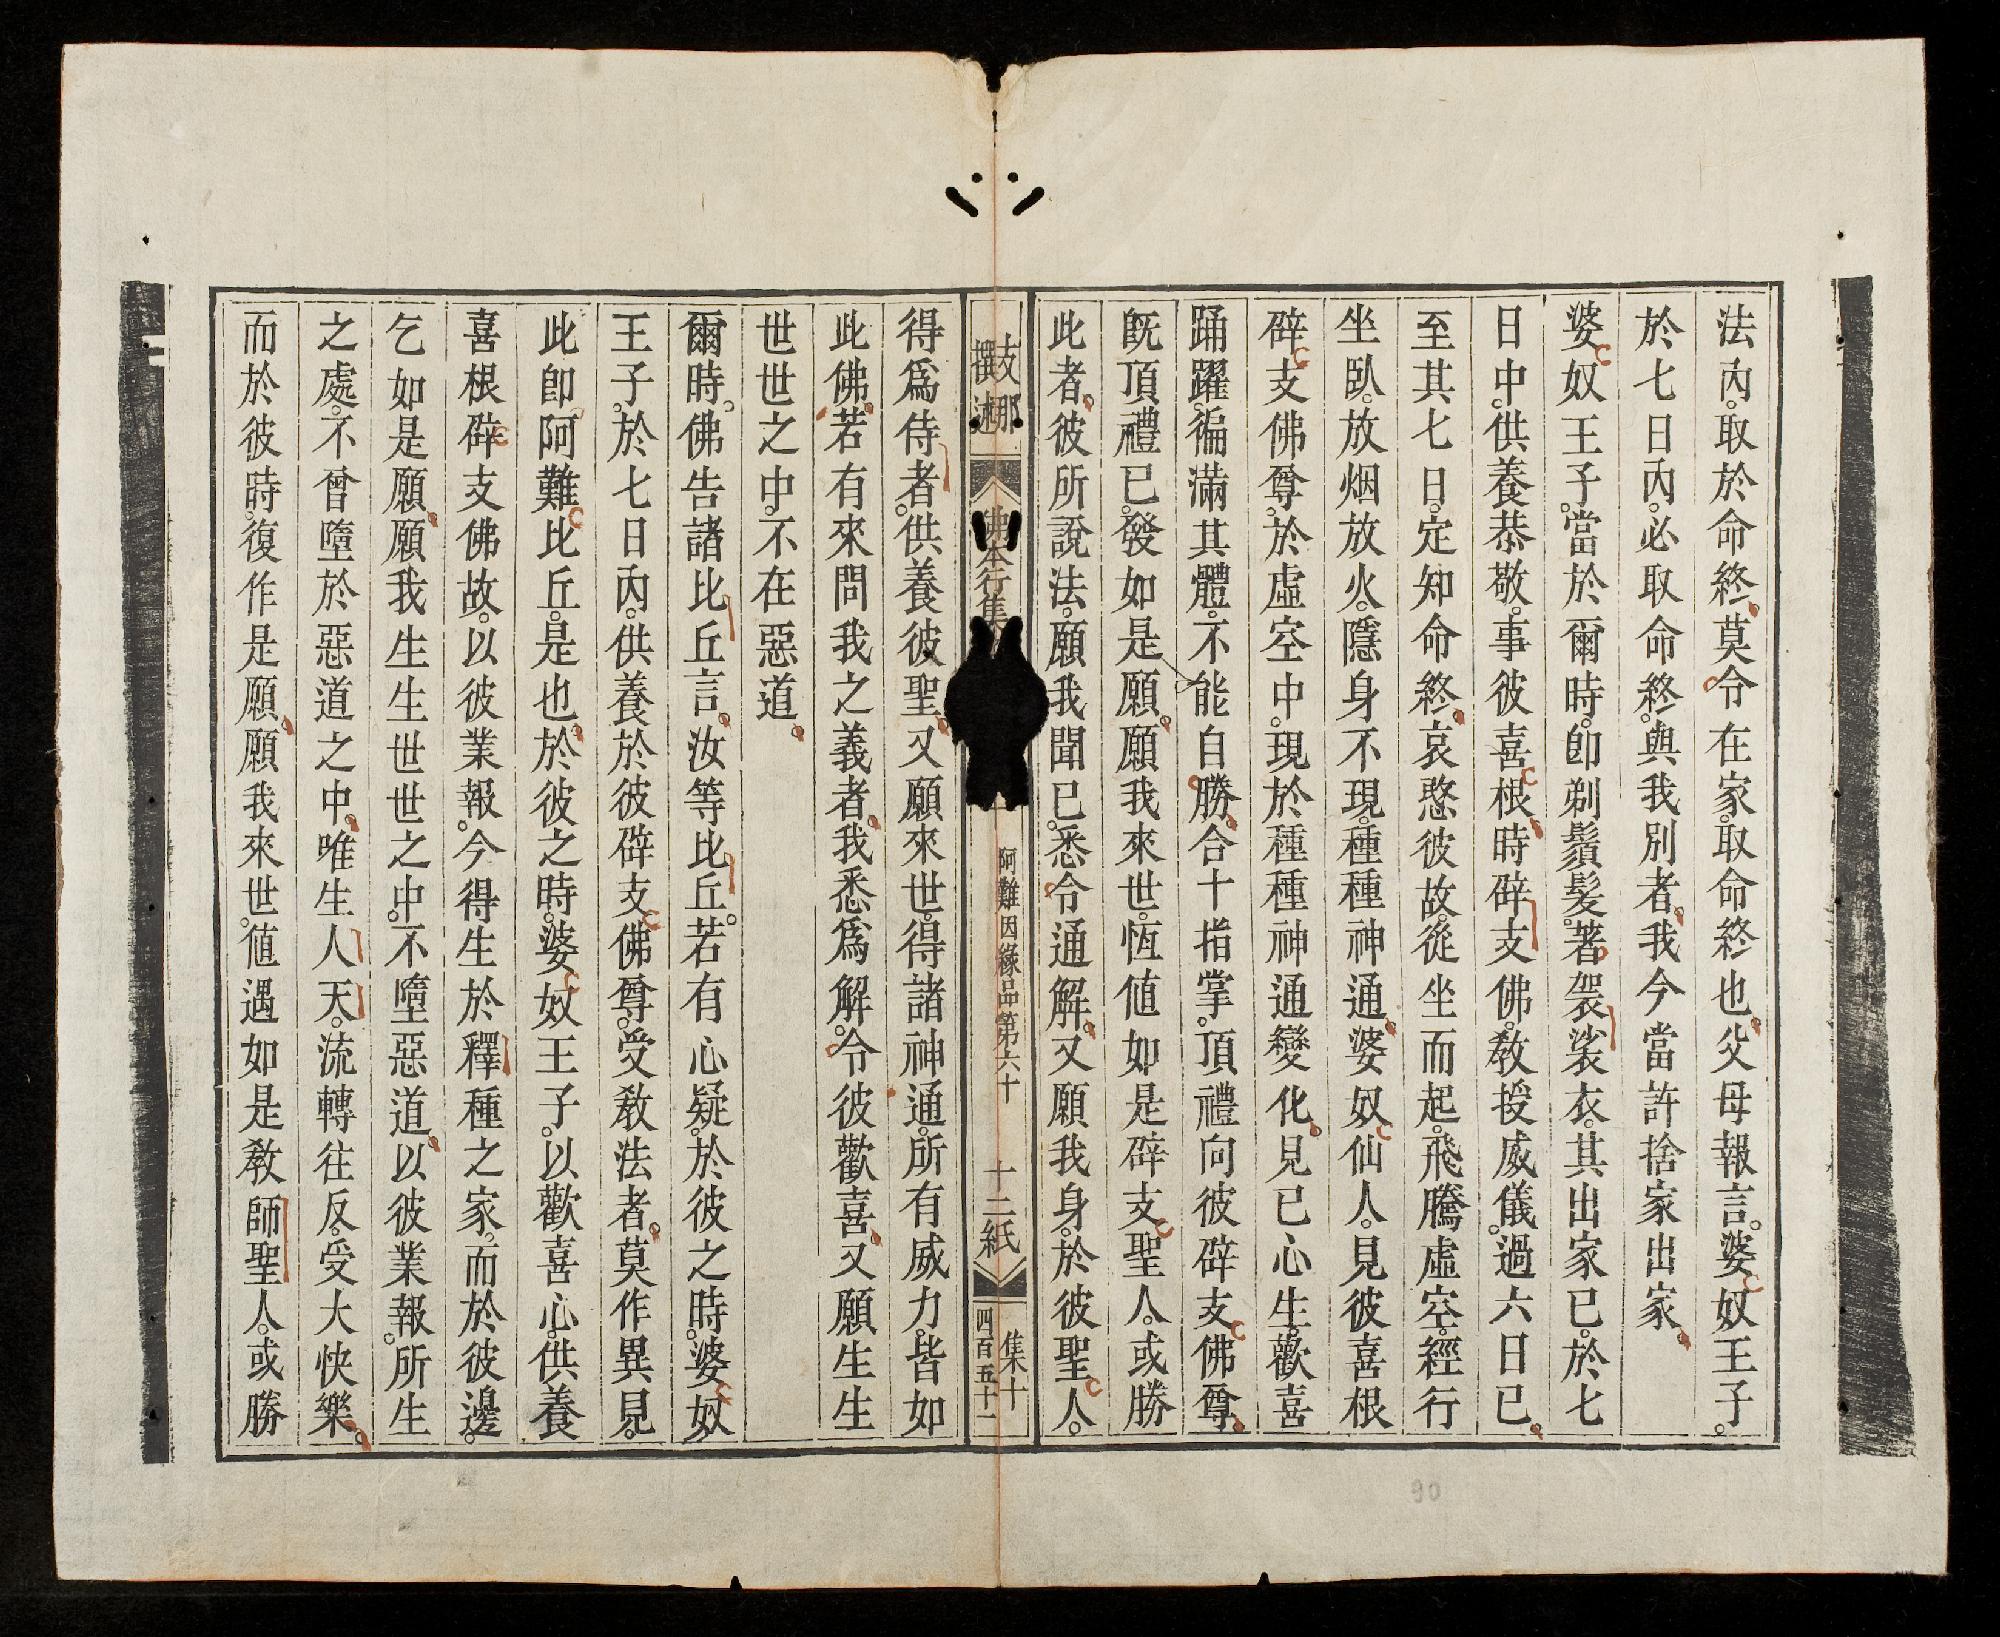 法內。取於命終。莫令在家。取命終也。父母報言。婆奴王子。
於七日內。必取命終。與我別者。我今當許捨家出家。
婆奴王子。當於爾時。卽剃鬚髮。著袈裟衣。其出家已。於七
日中。供養恭敬。事彼喜根。時辟支佛。敎授威儀。過六日已。
至其七日。定知命終。哀愍彼故。從坐而起。飛騰虛空。經行
坐臥。放烟放火。隱身不現。種種神通。婆奴仙人。見彼喜根
辟支佛尊。於虛空中。現於種種神通變化。見已心生。歡喜
踊躍。徧滿其體。不能自勝。合十指掌。頂禮向彼辟支佛尊。
旣頂禮已。發如是願。願我來世。恆値如是辟支聖人。或勝
此者。彼所說法。願我聞已。悉令通解。又願我身。於彼聖人。
支那
撰述
佛本行集
阿難因緣品第六十
十二紙
集十
四百五十一
得爲侍者。供養彼聖。又願來世。得諸神通。所有威力。皆如
此佛。若有來問我之義者。我悉爲解。令彼歡喜。又願生生
世世之中。不在惡道。
爾時。佛告諸比丘言。汝等比丘。若有心疑。於彼之時。婆奴
王子。於七日內。供養於彼辟支佛尊。受敎法者。莫作異見。
此卽阿難比丘。是也。於彼之時。婆奴王子。以歡喜心。供養
喜根辟支佛故。以彼業報。今得生於釋種之家。而於彼邊。
乞如是願。願我生生世世之中。不墮惡道。以彼業報。所生
之處。不曾墮於惡道之中。唯生人天。流轉往反。受大快樂。
而於彼時。復作是願。願我來世。値遇如是敎師聖人。或勝
90